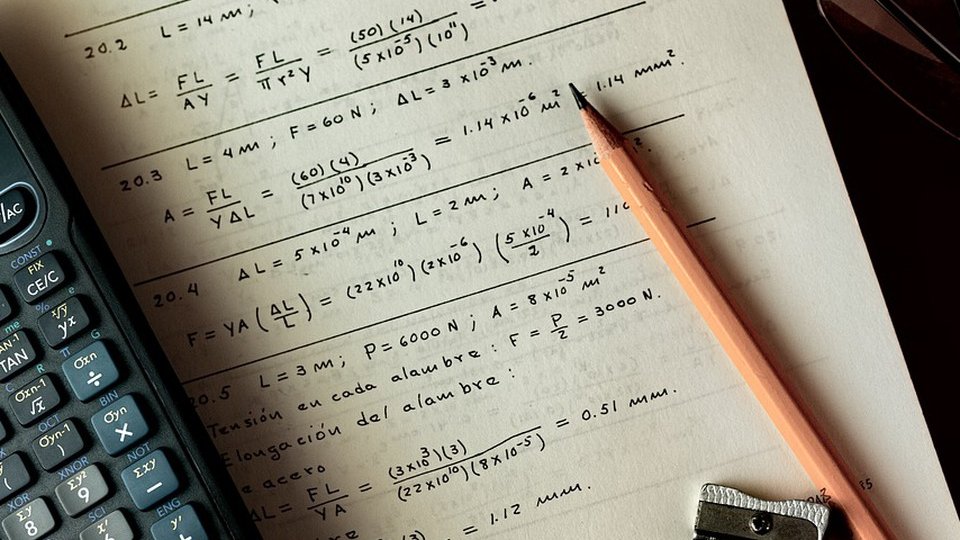 20.2 L = 14 m ;
ΔL = FL/AY = FL/πr²Y = (50)(14)/(5×10⁻⁵)(10¹¹) =
20.3 L = 4 m ; F = 60 N ; ΔL = 3×10⁻³ m.
A = FL/YΔL = (60)(4)/(7×10¹⁰)(3×10⁻³) = 1.14×10⁻⁶ m² = 1.14 mm².
20.4 ΔL = 5×10⁻⁴ m ; L = 2 m ; A = 2×10
F = YA(ΔL/L) = (22×10¹⁰)(2×10⁻⁶)(5×10⁻⁴/2) = 110
20.5 L = 3 m ; P = 6000 N ; A = 8×10⁻⁵ m²
Tensión en cada alambre : F = P/2 = 3000 N.
Elongación del alambre :
e acero
ΔL = FL/YA = (3×10³)(3)/(22×10¹⁰)(8×10⁻⁵) = 0.51 mm.
bre = 1.12 mm.
/AC
CONST
FIX
CE/C
x√y
yx
e
me
TAN
π
G
σxn
÷
C
R
σxn-1
√x
BIN
σyn
×
OCT
σyn-1
)
NOT
Σxy
−
XNOR
Σy²
9
(
XOR
8
SCI
ENG